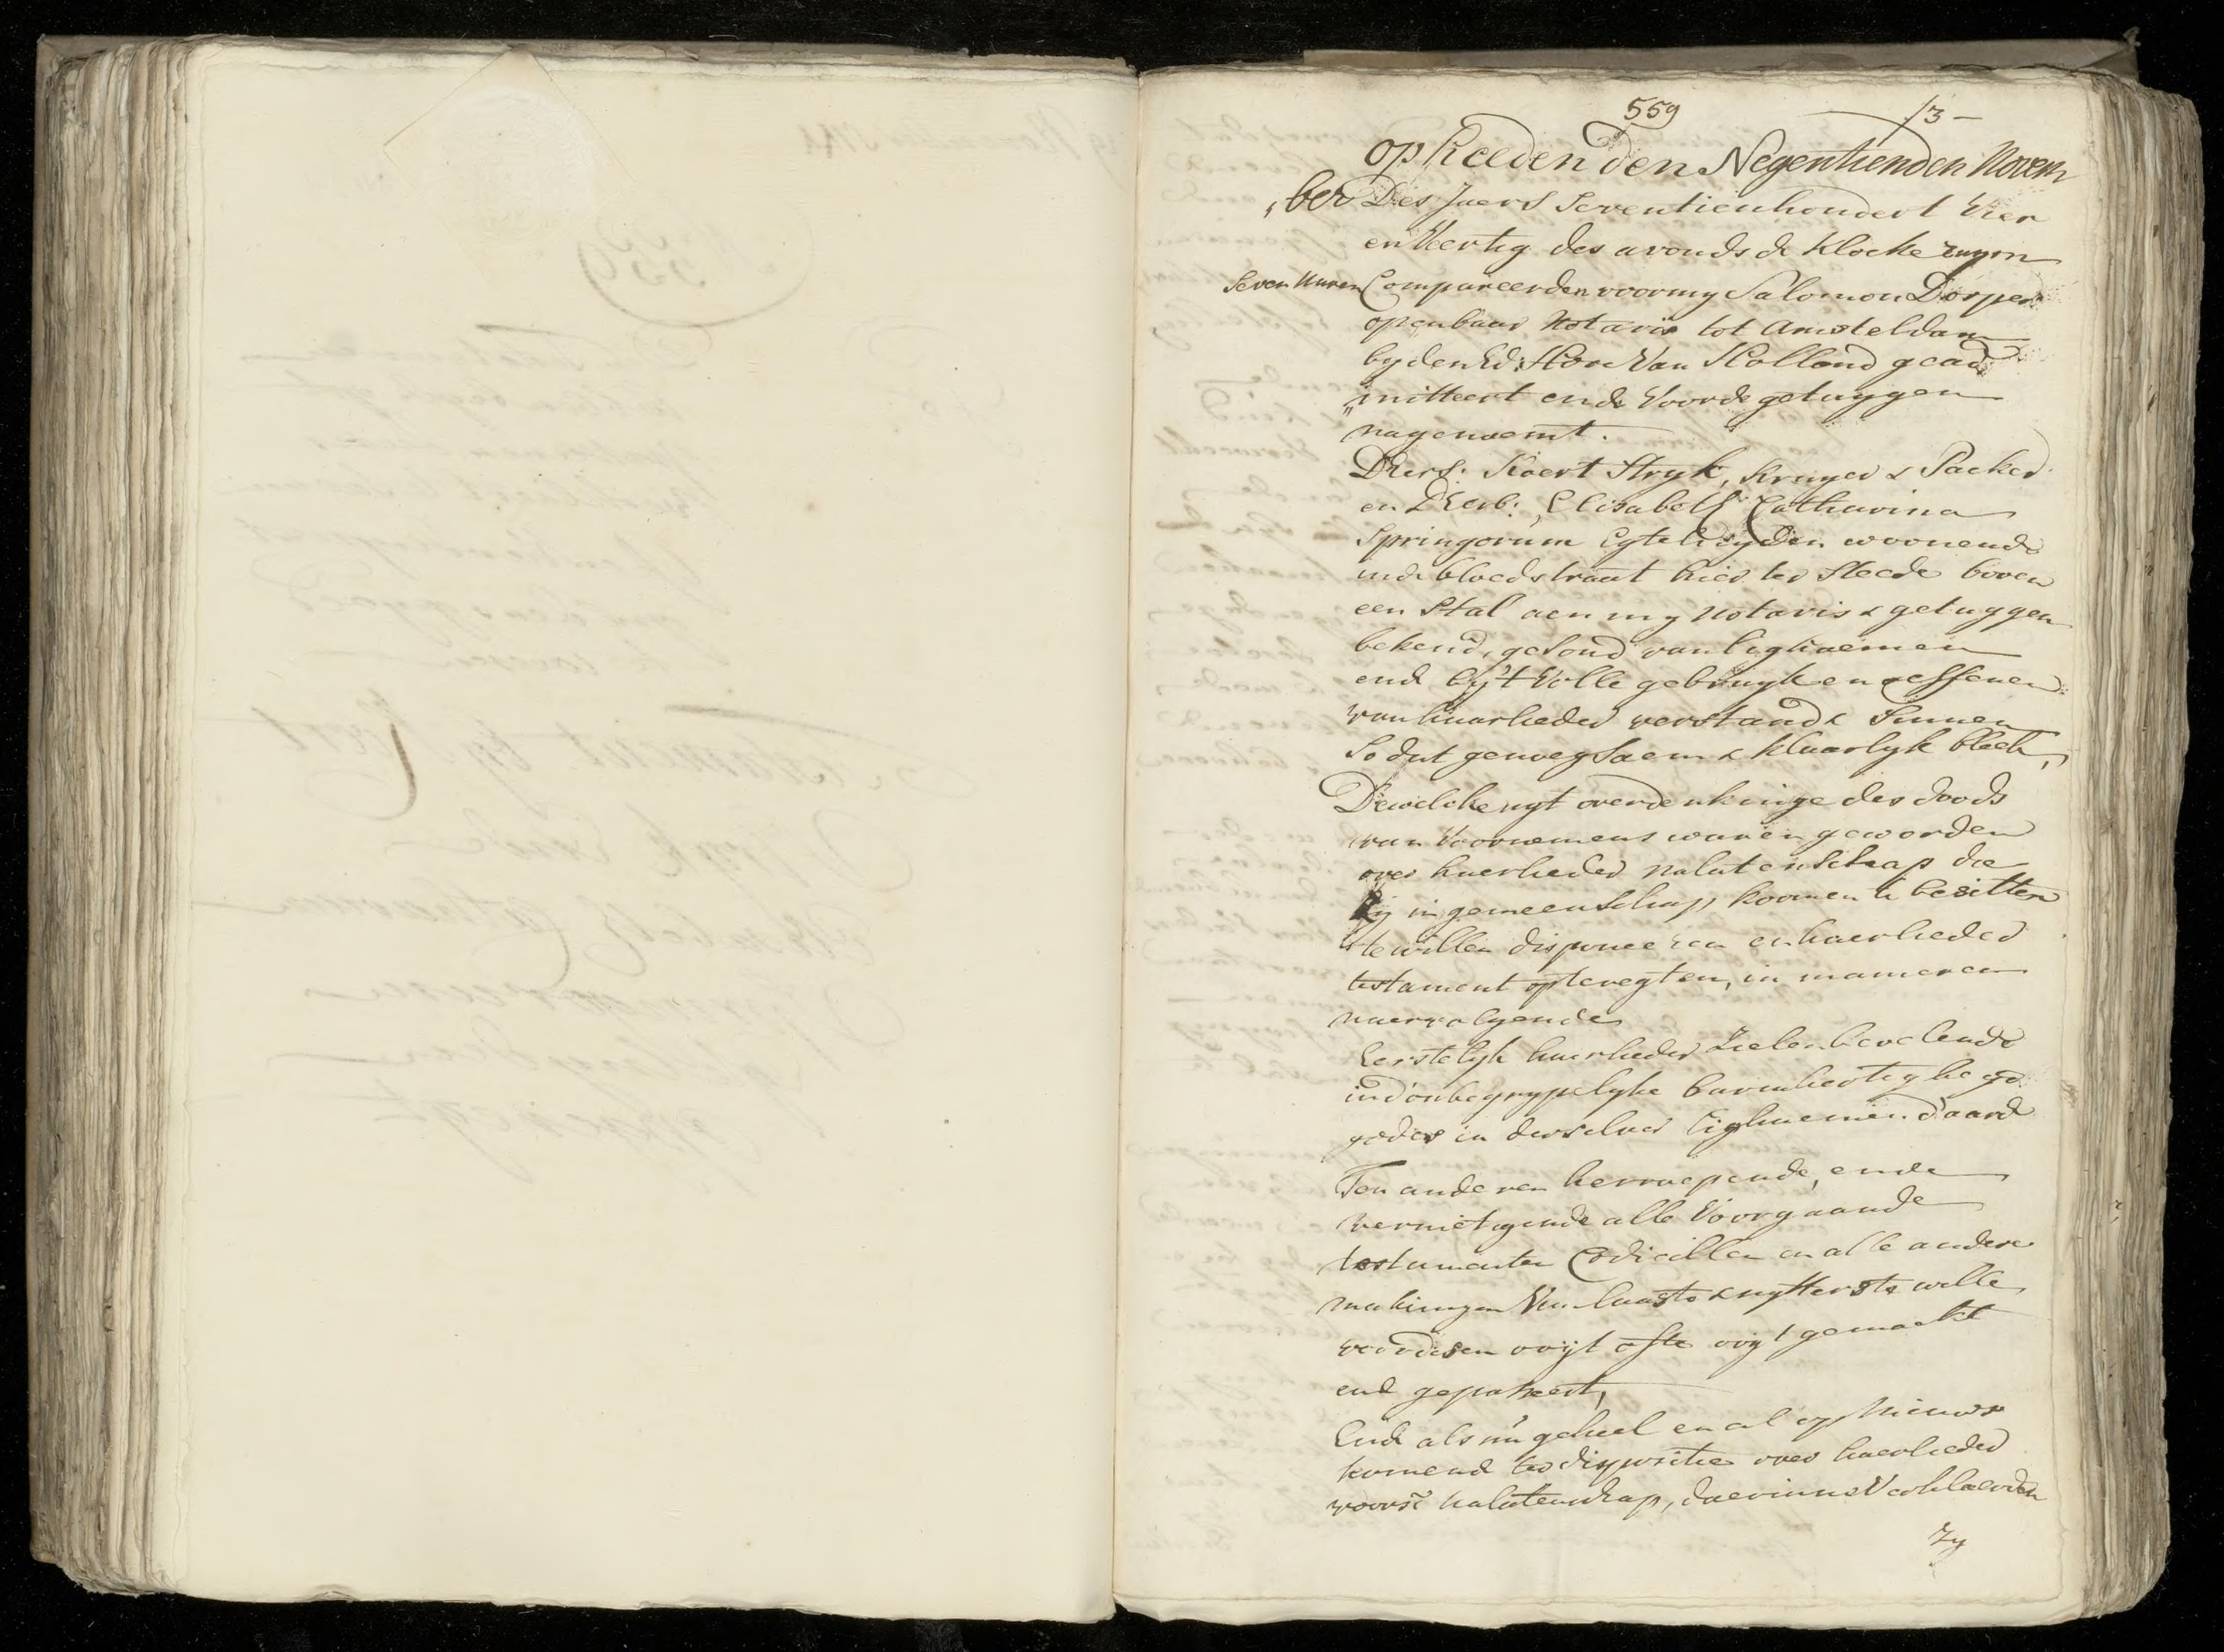 559
13 -
op heeden den Negentienden Novem
„ber Des Jaers Seventienhondert Vier
en Veertig des avonds de klocke
Seven Uuren Compareerden voor my Salomon Dorper
openbaar Notaris tot Amsteldam
by den Ed: Hove Van Holland gead
„mitteert ende Voor de getuygen
nagenoemt.
DEers: Koert Stryk, Kruyer & Packer
en DEerb: Elisabeth Catharina
Springorum Egtelieden woonende
in de bloedstraat hier ter Steede boven
een Stal aen my Notaris & getuygen
bekend, gesond van lighaemen
ende by 't Volle gebruyk en oeffenen
van haarlieder verstand & Sinnen
So dat genoegsaem & klaarlyk bleek,
Dewelcke uyt overdenkinge des doods
van Voornemens waren geworden
over haerlieder nalatenschap die
zij in gemeenschap koomen te besitten
te willen disponeeren en haerlieder
testament op te regten, in manieren
naervolgende
Eerstelyk haerlieder Zielen bevelende
in d'onbegrypelyke barmhertighe
godes en derselver lighaemen d'aarde
Ten anderen herroepende, ende
vernietigende alle Voorgaande
testamenten Codicillen en alle andere
makingen Van laaste & uytterste wille
voor desen ooyt ofte oyt gemaakt
end gepasseert,
Ende als nu geheel en al op Nieuws
komende ter dispositie over haerlieder
voorsz nalatenschap, daerinne Verklaerden
Zy